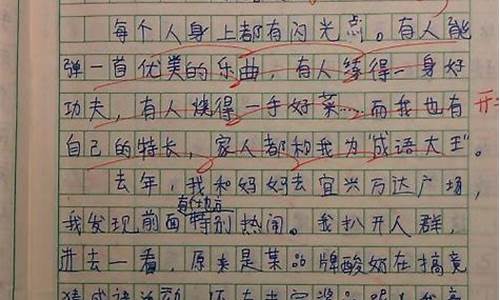 每个人身上都有闪光点。有人能
弹一首优美的乐曲，有人练得一身好
功夫，有人烧得一手好菜……而我也有
自己的特长，家人都和我为“成语大王”。
去年，我和妈妈去宜兴万达广场，
我发现前面有个地方特别热闹。我扒开人群，
进去一看，原来是某品牌酸奶在搞竞
猜成语活动
开